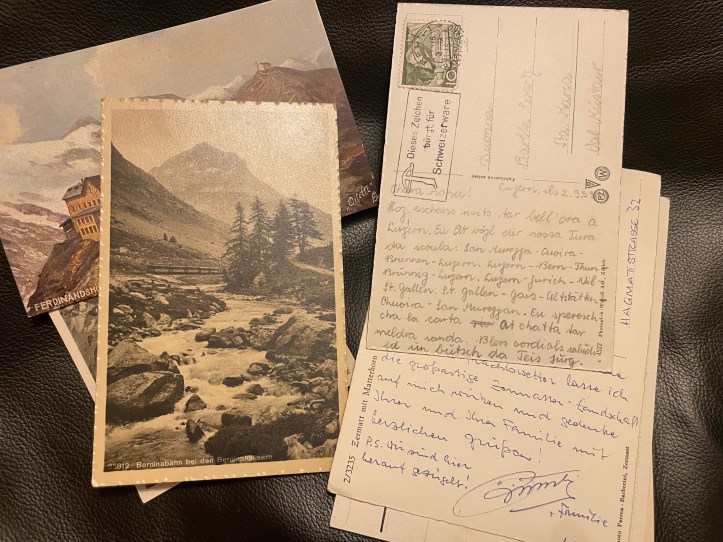 FERDINANDSH
25912 Berninabahn bei den Berninahäusern
10
Dieses Zeichen
bürgt für
Schweizerware
Sta. Maria
Luzern, als 2.9.53
Hoz eschans nuits tar bell'ora a
Luzern. Eu At vögl dir nossa Tura
da scoula: San Murezza - Cuoira -
Brunnen - Luzern, Luzern - Bern - Thun
Brünnig - Luzern, Luzern - Zurich - Wil
St. Gallen, St. Gallen - Gais - Altstätten
Chuoira - San Murezzan. Eu speresch
cha la carta At chatta in
meldra sanda. Blers cordials salüds
ed ün bütsch da Teis Jürg.
HAGMATTSTRASSE 32
2/3235 Zermatt mit Matterhorn
lasse ich
die großartige Zermatter-Landschaft
auf mich wirken und gedenke
Ihrer und Ihrer Familie mit
herzlichen Grüßen!
P.S. Wir sind hier
herauf gesegelt!
+ Familie
Perren-Barberini, Zermatt